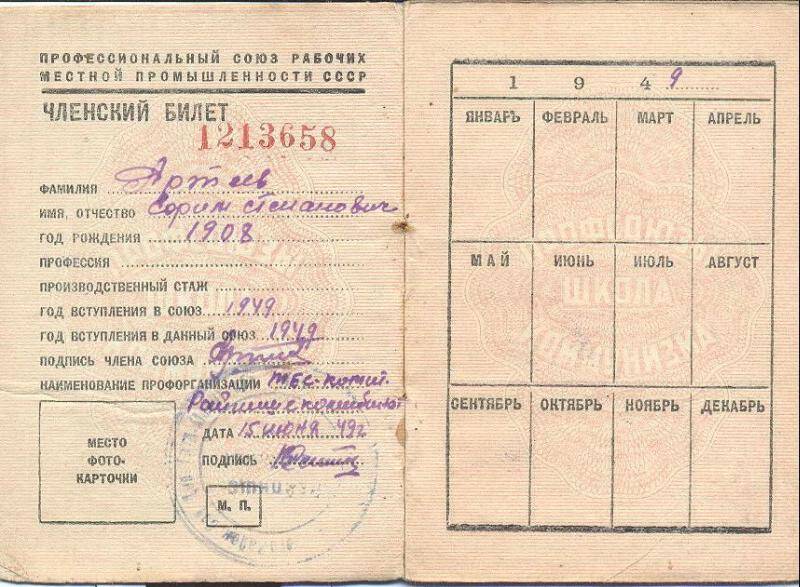 ПРОФЕССИОНАЛЬНЫЙ СОЮЗ РАБОЧИХ
МЕСТНОЙ ПРОМЫШЛЕННОСТИ СССР
ЧЛЕНСКИЙ БИЛЕТ
1213658
ФАМИЛИЯ
ИМЯ, ОТЧЕСТВО
ГОД РОЖДЕНИЯ 1908
ПРОФЕССИЯ
ПРОИЗВОДСТВЕННЫЙ СТАЖ
ГОД ВСТУПЛЕНИЯ В СОЮЗ 1949
ГОД ВСТУПЛЕНИЯ В ДАННЫЙ СОЮЗ 1949
ПОДПИСЬ ЧЛЕНА СОЮЗА
НАИМЕНОВАНИЕ ПРОФОРГАНИЗАЦИИ
ДАТА 15 июня 49г
ПОДПИСЬ
МЕСТО
ФОТО-
КАРТОЧКИ
М. П.
1949
ЯНВАРЬ ФЕВРАЛЬ МАРТ АПРЕЛЬ
МАЙ ИЮНЬ ИЮЛЬ АВГУСТ
СЕНТЯБРЬ ОКТЯБРЬ НОЯБРЬ ДЕКАБРЬ
ПРОФСОЮЗЫ
ШКОЛА
КОММУНИЗМА